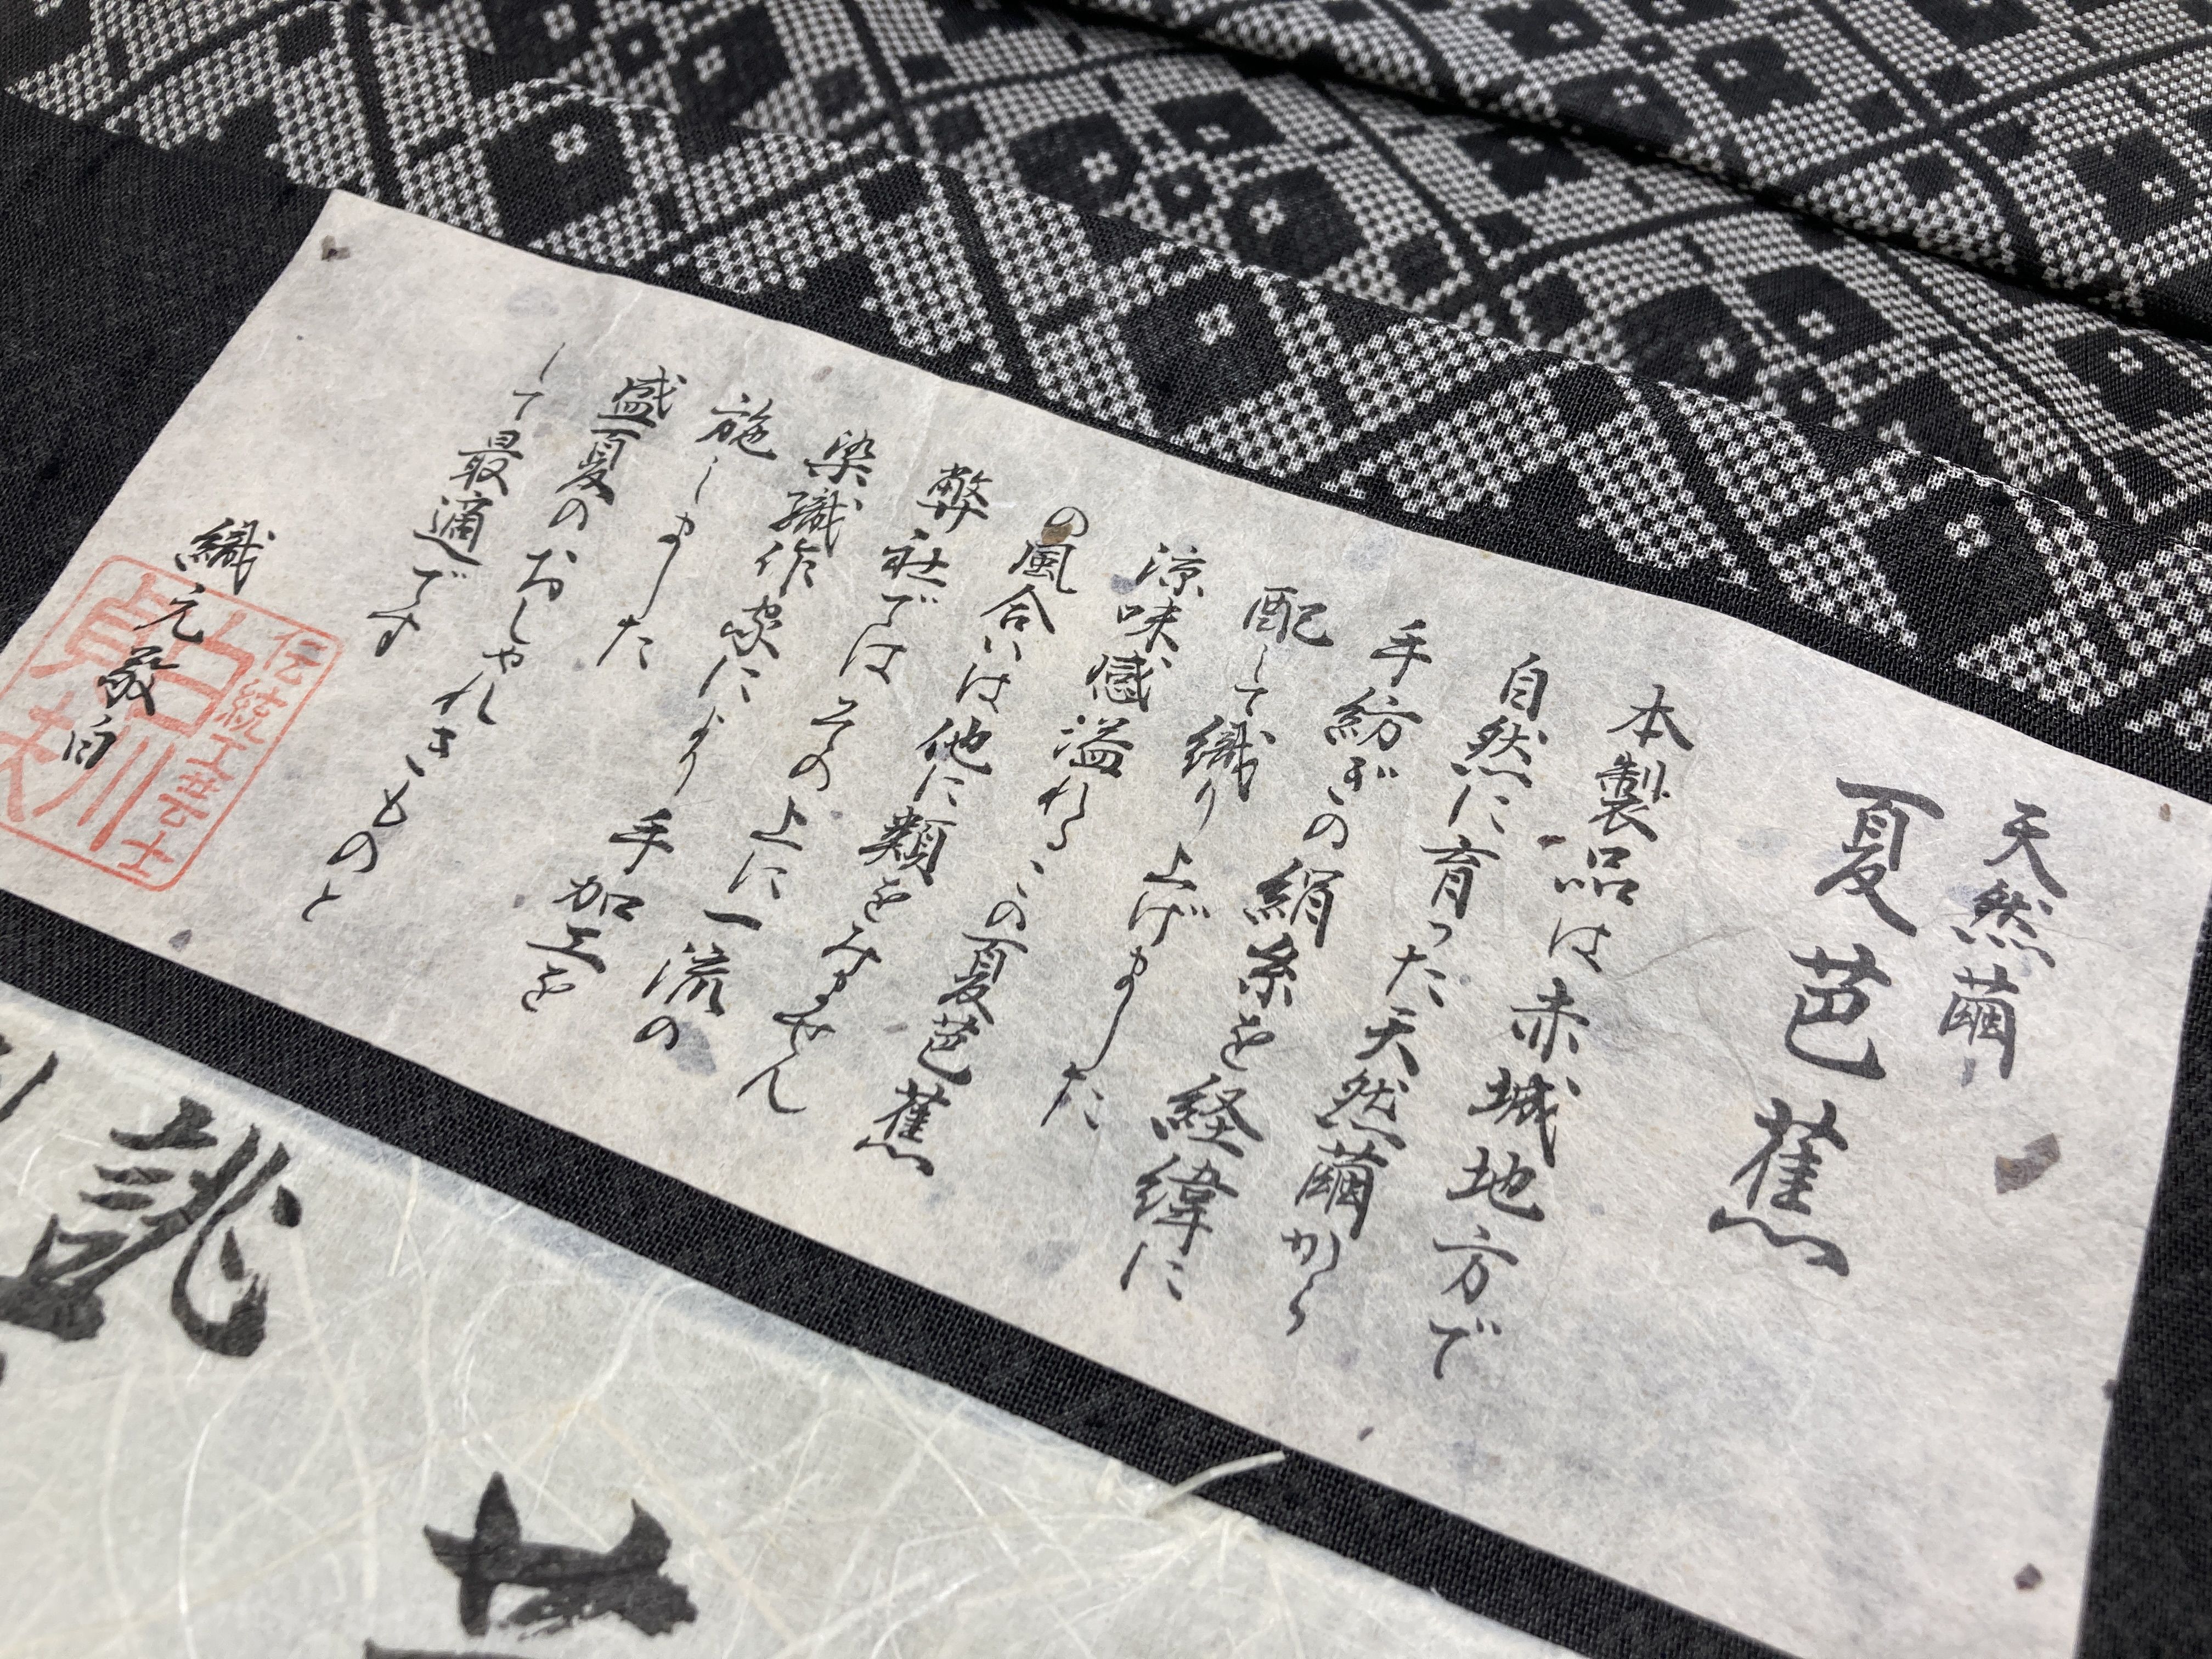 天然繭
夏芭蕉
本製品は赤城地方で
自然に育った天然繭から
手紡ぎの絹糸を経緯に
配して織り上げました
涼味感溢れるこの夏芭蕉
の風合いは他に類をみません
弊社ではその上に一流の
染織作家により手加工を
施しました
盛夏のおしゃれきものと
して最適です
織元敬白
伝統工芸士